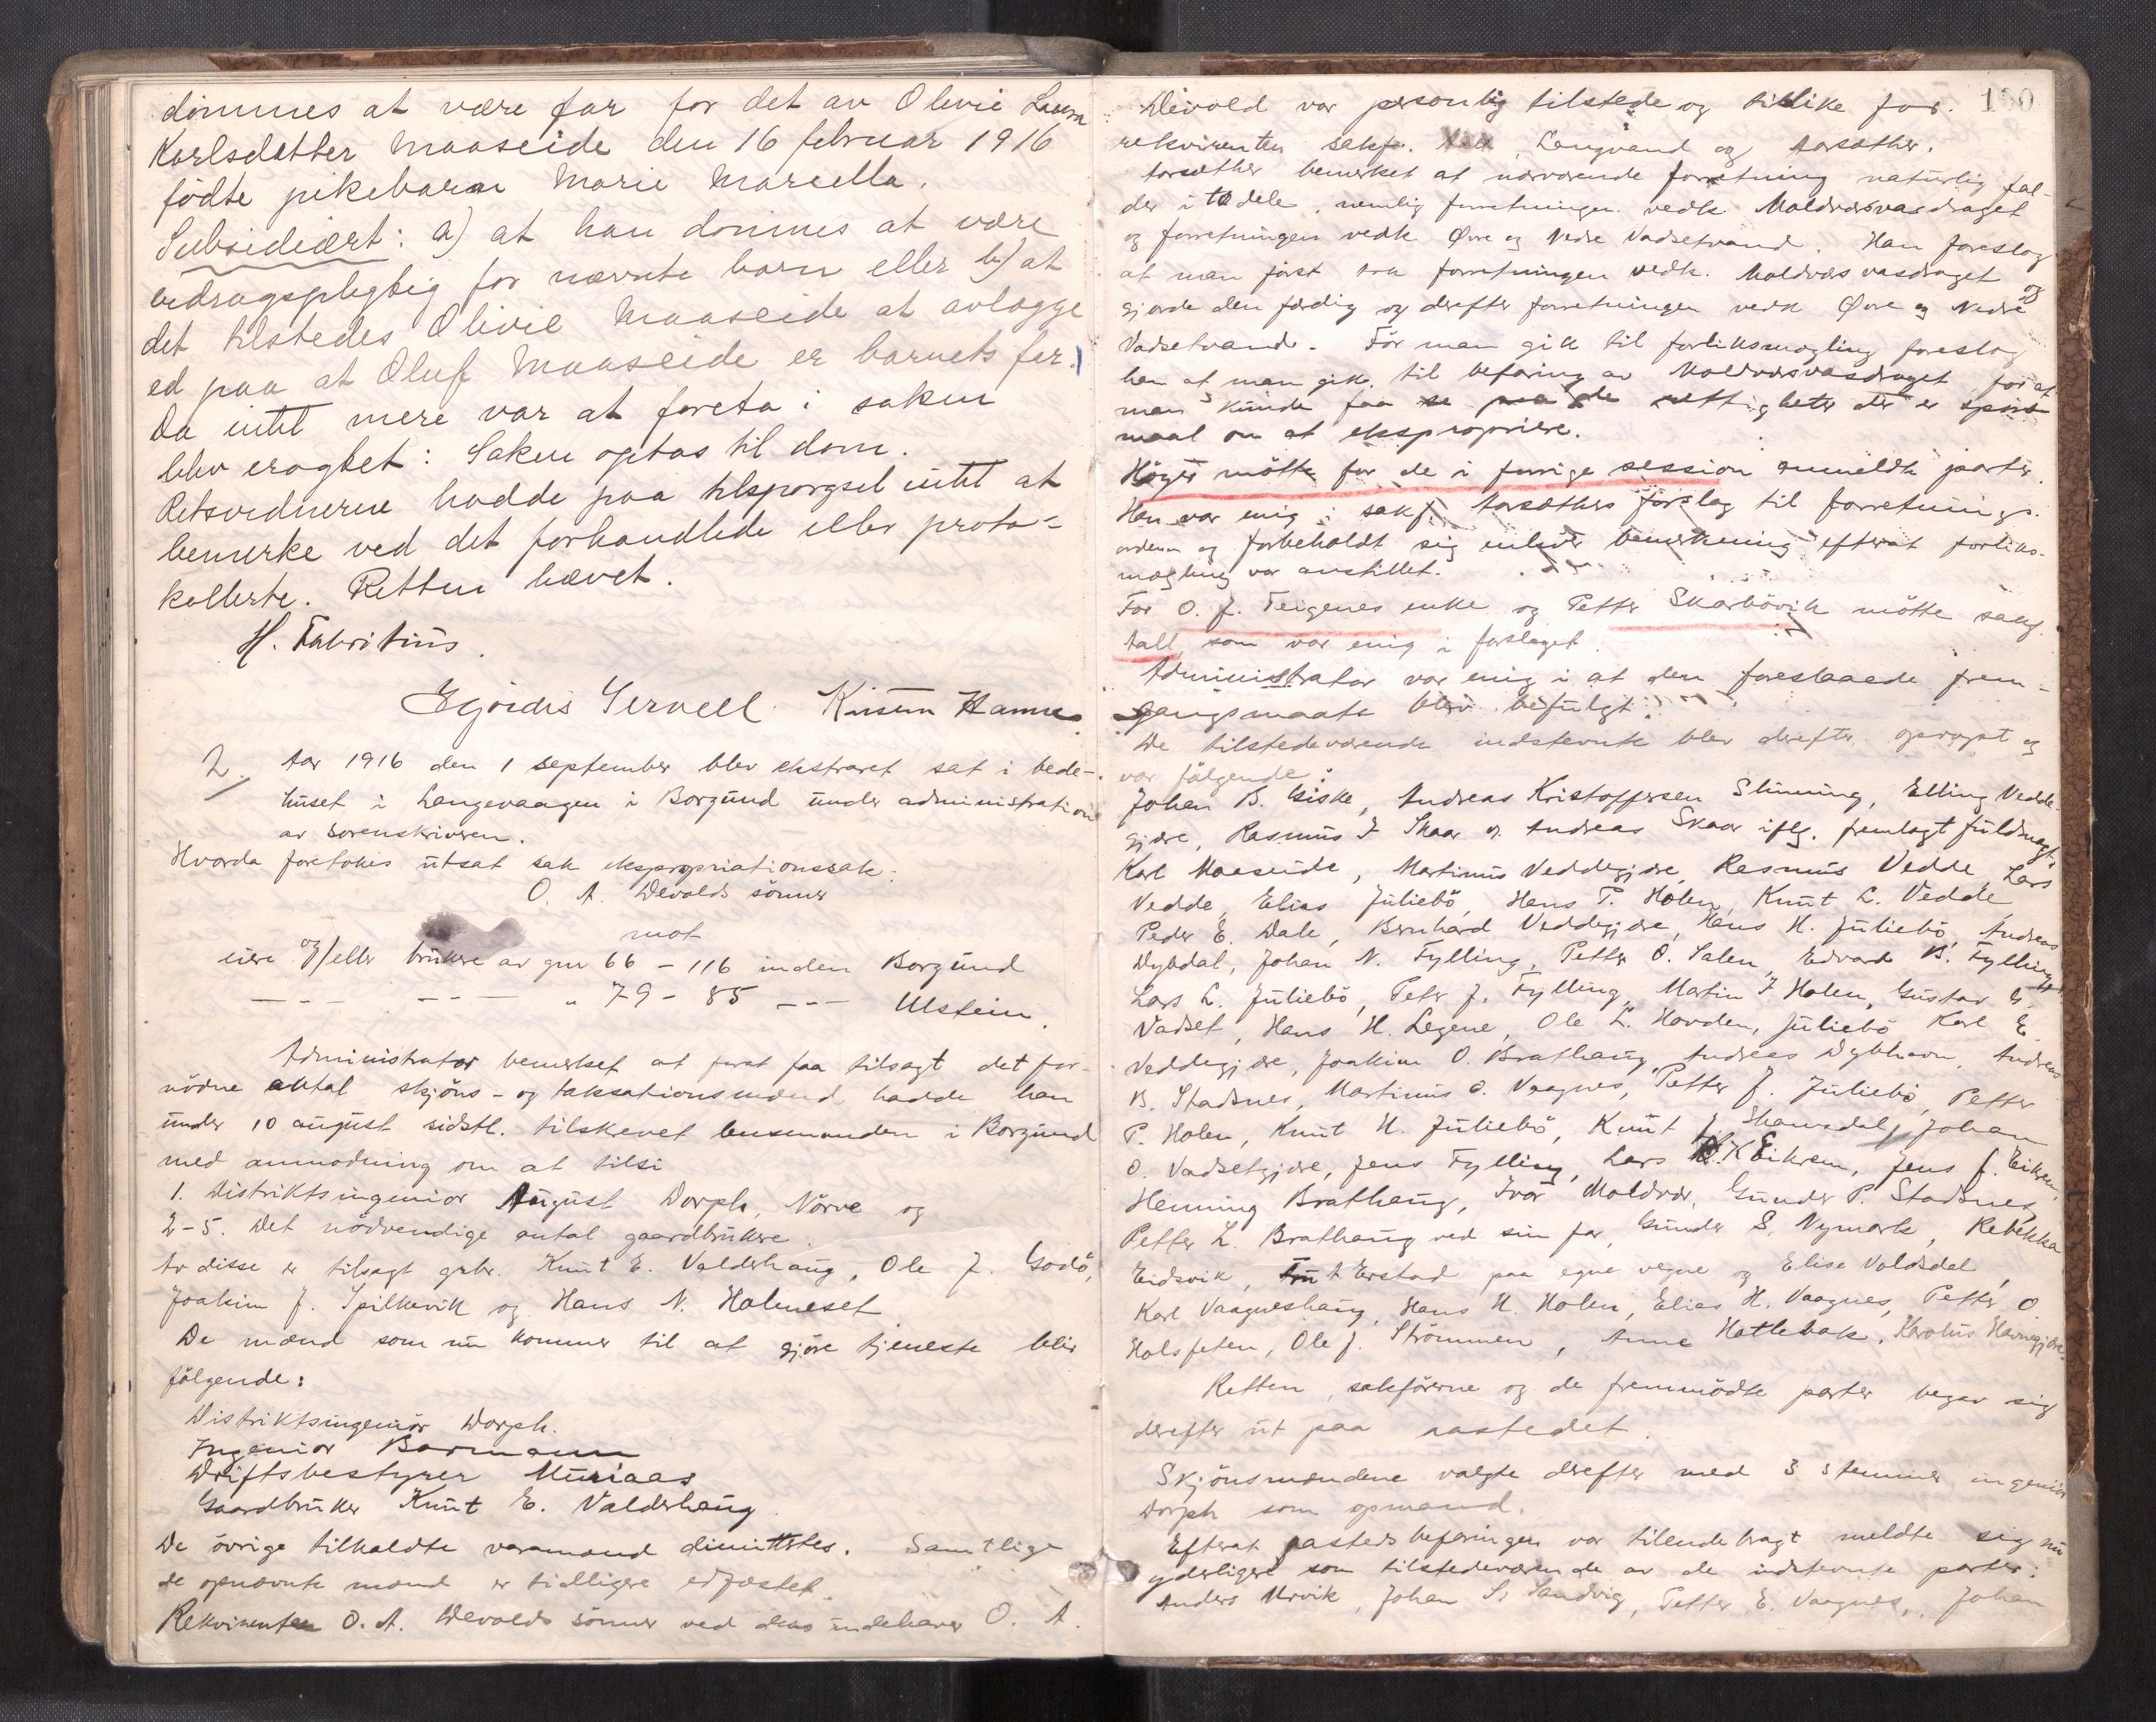 dömmes at være far for det av Olivie Laura
Karlsdatter Maaseide den 16 februar 1916
födte pikebarn Marie Marsella.
Subsidiært: a) at han dömmes at være
bidragspligtig for nævnte barn eller b) at
det tilstedes Olivie Maaseide at avlægge
ed paa at Oluf Maaseide er barnets far.
Da intet mere var at foreta i saken
blev eragtet: Saken optas til dom.
Retsvidnerne hadde paa tilspørgsel intet at
bemerke ved det forhandlede eller proto-
kollerte. Retten hævet.
H. Fabritius.
Servell Hamre
2. Aar 1916 den 1 september blev ekstraret sat i bede-
huset i Langevaagen i Borgund under administration
av sorenskriveren.
Hvorda foretokes utsat sak ekspropriationssak:
O. A. Devolds sönner
mot
eiere og/eller brukere av gnr 66 - 116 inden Borgund
— - - — - - — " 79 - 85 - - - Ulstein.
Administrator bemerket at forat faa tilsagt det for-
nödne antal skjöns- og taksationsmænd hadde han
under 10 august sidstl. tilskrevet lensmanden i Borgund
med anmodning om at tilsi
1. Distriktsingeniör August Dorph, Nörve og
2-5. Det nödvendige antal gaardbrukere.
Av disse er tilsagt grbr. Knut E. Valderhaug, Ole J. Godö,
Joakim J. Spilkevik og Hans N. Holmeset
De mænd som nu kommer til at gjöre tjeneste blir
fölgende:
Distriktsingeniör Dorph.
Ingeniör Bormann
Driftsbestyrer Muriaas
Gaardbruker Knut E. Valderhaug.
De övrige tilkaldte varamænd dimittertes. Samtlige
de opnævnte mænd er tidligere edfæstet.
Rekvirenten O. A. Devolds sönner ved dens indehaver O. A.
100
Devold var personlig tilstede og tillike for
rekvirenten sakf. Langvand og Aarsæther.
Aarsæther bemerket at nærværende forretning naturlig fal-
der i to dele, nemlig forretningen vedk Moldværsvasdraget
og forretningen vedk Övre og Nedre Vadsetvand. Han foreslog
at man först tok forretningen vedk. Moldværsvasdraget og
gjorde den færdig og derefter forretningen vedk Övre og Nedre
Vadsetvand. För man gik til forliksmægling foreslog
han at man gik til befaring av Moldværsvasdraget for at
man kunde faa se paa de rettigheter der er spörs
maal om at ekspropriere.
Höyer mötte for de i forrige session anmeldte parter.
Han var enig i sakf. Aarsæthers forslag til forretnings-
ordenen og forbeholdt sig enhver bemerkning efterat forliks-
mægling var anstillet.
For O. J. Teigenes enke og Petter Skarbövik mötte sakf.
Aall som var enig i forslaget.
Administrator var enig i at den foreslaaede frem-
gangsmaate blev befulgt.
De tilstedeværende indstevnte blev derefter opropt og
var fölgende:
Johan B. Giske, Andreas Kristoffersen Slinning, Elling Vedde-
gjære, Rasmus J Skaar og Andreas Skaar iflg. fremlagt fuldmagt,
Karl Maaseide, Martinus Veddegjære, Rasmus Vedde, Lars
Vedde, Elias Juliebö, Hans P. Holen, Knut L. Vedde
Peder E. Dale, Bernhard Veddegjære, Hans H. Juliebö, Andreas
Dybdal, Johan N. Fylling, Petter O. Salen, Edvard B. Fylling
Lars L. Juliebö, Peter J. Fylling, Martin J Holen, Gustav E.
Vadset, Hans H. Legene, Ole L. Hovden, Juliebö Karl E.
Veddegjære, Joakim O. Brathaug, Andreas Dybhavn, Andreas
B. Stadsnes, Martinus O. Vaagnes, Petter J. Juliebö, Petter
P. Holen, Knut H. Juliebö, Knut J. Johan
O. Vadsetgjære, Jens Fylling, Lars K Eikrem, Jens J. Eikrem,
Henning Brathaug, Ivar Moldvær, Gunder P. Stadsnes,
Petter L. Brathaug ved sin far, Gunder S. Nymark, Rebekka
Eidsvik, Erstad paa egne vegne og Elise Voldsdal,
Karl Vaagneshaug, Hans H. Holen, Elias H. Vaagnes, Petter O
Holsfeten, Ole J. Strömmen, Anne Hatlebak, Karolus Havnegjære.
Retten, sakförerne og de fremmödte parter begav sig
derefter ut paa aastedet.
Skjönsmændene valgte derefter med 3 stemmer ingeniör
Dorph som opmand.
Efterat aastedsbefaringen var tilendebragt meldte sig nu
yderligere som tilstedeværende av de indstevnte parter:
Anders Urvik, Johan S. Sandvig, Petter E. Vaagnes, Johan